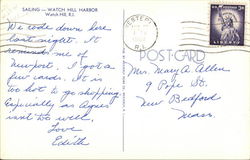 SAILING — WATCH HILL HARBOR
Watch Hill, R.I.
We rode down here
last night. It
reminds me of
Newport. I got a
few cards. It is
too hot to go shopping
Especially as Agnes
isn't too well.
Love
Edith
WESTERLY
R.I.
LIBERTY
POST CARD
Mrs. Mary A. Allen
9 Pope St.
New Bedford
Mass.